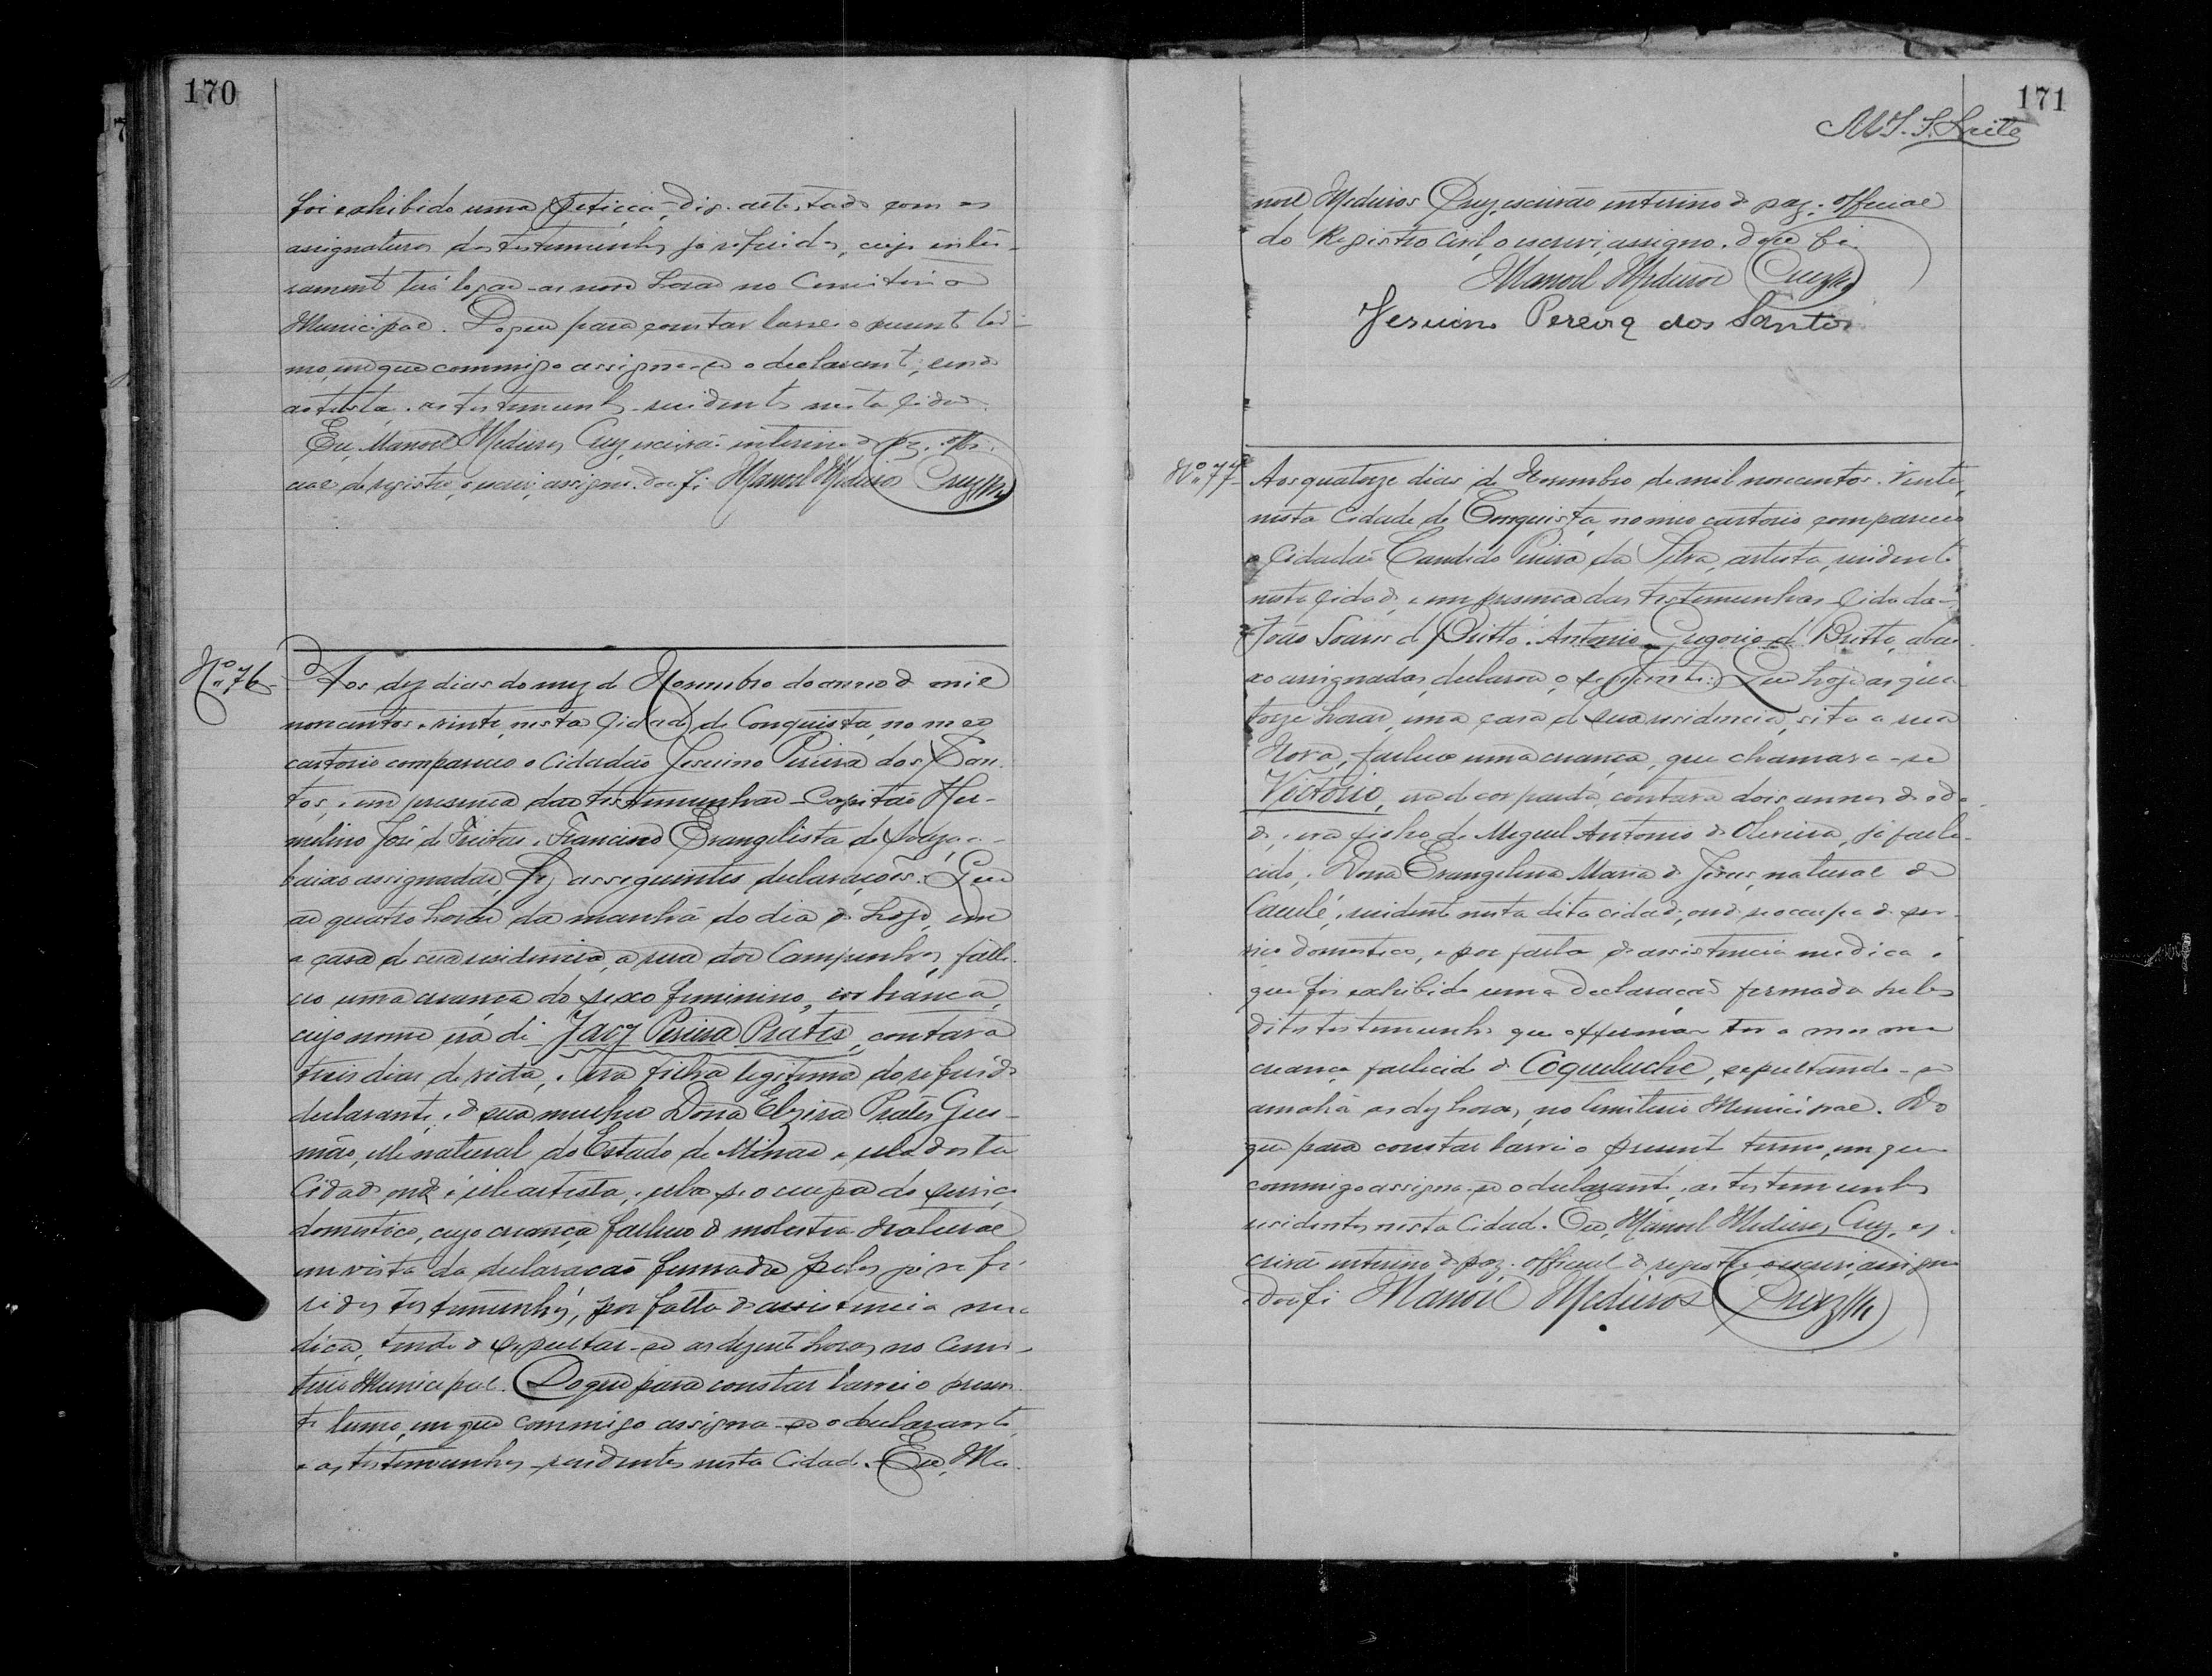 170
foi exhibido uma petiçcã, digo attestado com as
assignaturas das testemunhas já referidas, cujo enter-
ramento terá logar as nove horas no Cemiterio
Municipal. Do que para constar lavrei o presente ter-
mo, em que commigo assigna-se o declarante, 
as testemunhas residentes nesta cidade.
Eu, Manoel Medeiros Cruz, escrivão interino de paz, offi-
cial de registro, o escrevi, assigno. Dou fé Manoel Medeiros Cruz
Nº 76
Aos dez dias do mez de Novembro do anno de mil
novecentos e vinte, nesta cidade de Conquista, no meu
cartorio compareceu o Cidadão Jesuino Pereira dos San-
tos, e em presença das testemunhas Capitão Her-
melino José de Freitas e Francisco Evangelista de Souza, a-
baixo assignadas, fez as seguintes declarações: Que
as quatro horas da manhã do dia de hoje, em
a casa de sua residencia, a rua dos Campinhos, falle-
ceo uma creança do sexo feminino, cor branca,
cujo nome éra de Jacy Pereira Prates, contava
treis dias de vida, e era filha legitima do referido
declarante, e de sua mulher Dona Elzira Prates Gus-
mão, elle natural do Estado de Minas e ella desta
Cidade onde é elle artista, e ella se occupa do serviço
domestico, cuja creança falleceo de molestia natural
em vista da declaração firmada pelas já refe-
ridas testemunhas, por falta de assistencia me-
dica, tendo de sepultar-se as dezesete horas no Cemi-
terio Municipal. Do que para constar lavrei o presen-
te termo, em que commigo assigna-se o declarante,
e as testemunhas residentes nesta Cidade. Eu, Ma-
171
M. J. S. Leite
noel Medeiros Cruz, escrivão interino de paz, official
do Registro Civil, o escrevi, assigno. Dou fé.
Manoel Medeiros Cruz
Jesuino Pereira dos Santos
Nº 77
Aos quatorze dias de Novembro de mil novecentos e vinte,
nesta Cidade de Conquista, no meu cartorio compareceu
o Cidadão Candido Pereira da Silva, artista, residente
nesta cidade, e em presença das testemunhas Cidadãos
João Soares de Britto e Antonio Gregorio de Britto, abai-
xo assignadas, declarou o seguinte: Que hoje as qua-
torze horas, em a casa de sua residencia, sita a rua
Nova, falleceo uma creança, que chamava-se
Victorio, era de cor parda, contava dois annos de eda-
de, e era filho de Miguel Antonio de Oliveira, já falle-
cido, e Dona Evangelina Maria de Jesus, natural de
Caculé, residente nesta dita cidade, onde se occupa de ser-
viço domestico, e por falta de assistencia medica é
que foi exhibida uma declaração firmada pelas
ditas testemunhas que affirmão ter a mesma
creança fallecido de Coqueluche, sepultando-se
amanhã as dez horas, no Cemiterio Municipal. Do
que para constar lavrei o presente termo, em que
commigo assigna-se o declarante, e as testemunhas
residentes nesta Cidade. Eu, Manoel Medeiros Cruz, es-
crivão interino de paz, official de registro, o escrevi, assigno
e dou fé Manoel Medeiros Cruz